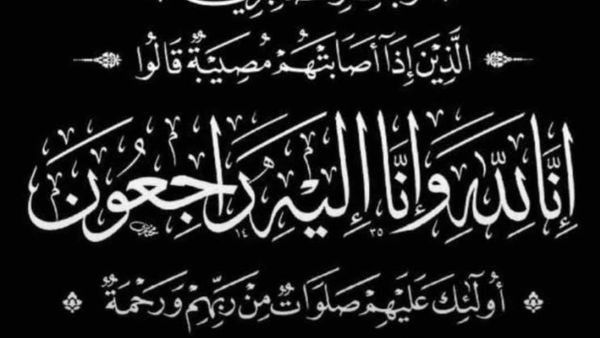 الَّذِينَ إِذَا أَصَابَتْهُمْ مُصِيبَةٌ قَالُوا
إِنَّا لِلَّهِ وَإِنَّا إِلَيْهِ رَاجِعُونَ
١٤ ٣٥
أُولَٰئِكَ عَلَيْهِمْ صَلَوَاتٌ مِنْ رَبِّهِمْ وَرَحْمَةٌ